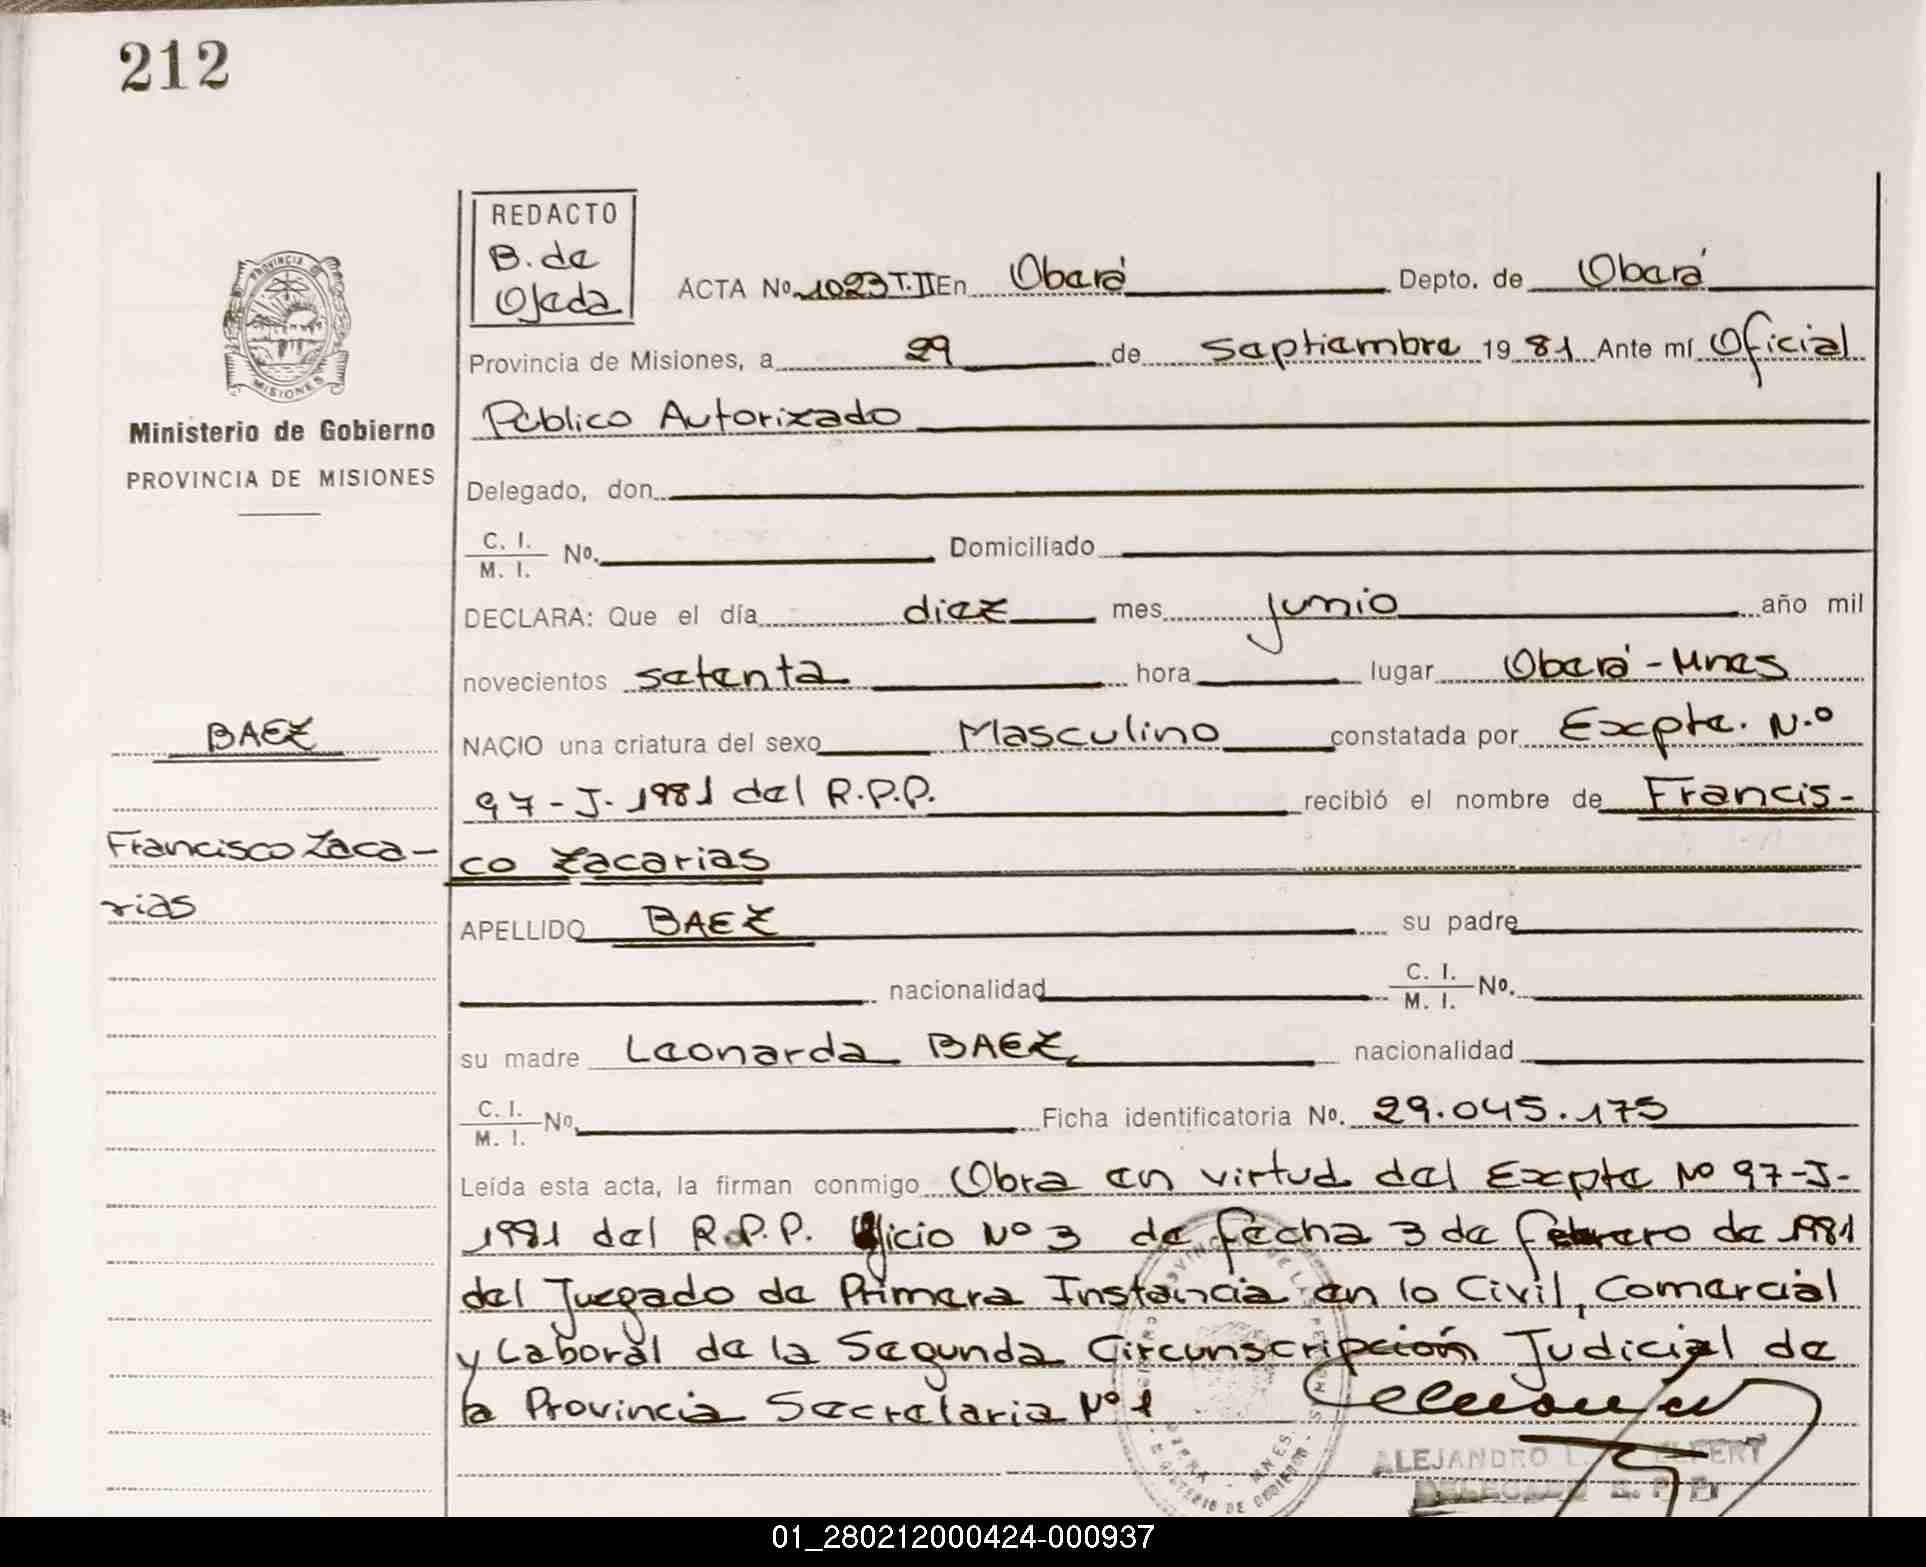 212
REDACTO
B. de
Ojeda
ACTA No. 1023 T.II En Oberá Depto. de Oberá
Provincia de Misiones, a 29 de septiembre 19 81 Ante mí Oficial
Público Autorizado
Ministerio de Gobierno
PROVINCIA DE MISIONES
Delegado, don
C. I.
M. I. No. Domiciliado
DECLARA: Que el día diez mes junio año mil
novecientos setenta hora lugar Oberá - Mnes
BAEZ
NACIO una criatura del sexo Masculino constatada por Expte. N.º
97 - J. 1981 del R.P.P. recibió el nombre de Francis-
Francisco Zaca-
co Zacarias
rias
APELLIDO BAEZ su padre
nacionalidad C. I.
M. I. No.
su madre Leonarda BAEZ nacionalidad
C. I.
M. I. No. Ficha identificatoria No. 29.045.175
Leída esta acta, la firman conmigo Obra en virtud del Expte Nº 97-J-
1981 del R.P.P. Oficio Nº 3 de fecha 3 de febrero de 1981
del Juzgado de Primera Instancia en lo Civil, Comercial
y Laboral de la Segunda Circunscripción Judicial de
la Provincia Secretaria Nº 1
ALEJANDRO L.
01_280212000424-000937